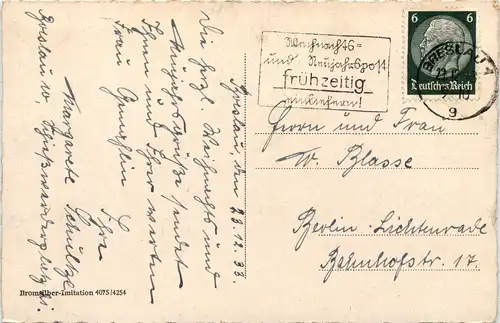 Breslau, den 23.12.33.
Die herzl. Weihnachts und
Neujahrsgrüße sendet
Ihnen und Ihrer werten
Frau Gemahlin
Ihre
Margarete Schultze
Breslau
Weihnachts-
und Neujahrspost
frühzeitig
einliefern!
6 6
Deutsches Reich
BRESLAU
g
Herrn und Frau
W. Blasse
Berlin-Lichtenrade
Bahnhofstr. 17
Bromsilber-Imitation 4075/4254